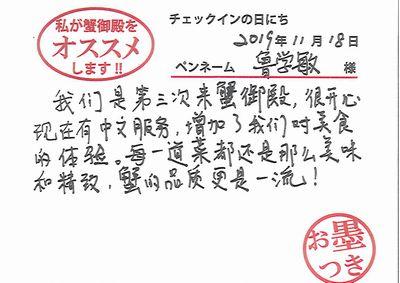 私が蟹御殿を
オススメ
します!!
チェックインの日にち
2019年11月18日
ペンネーム 鲁学敏 様
我们是第三次来蟹御殿,很开心
现在有中文服务,增加了我们对美食
的体验。每一道菜都还是那么美味
和精致,蟹的品质更是一流!
お墨
つき